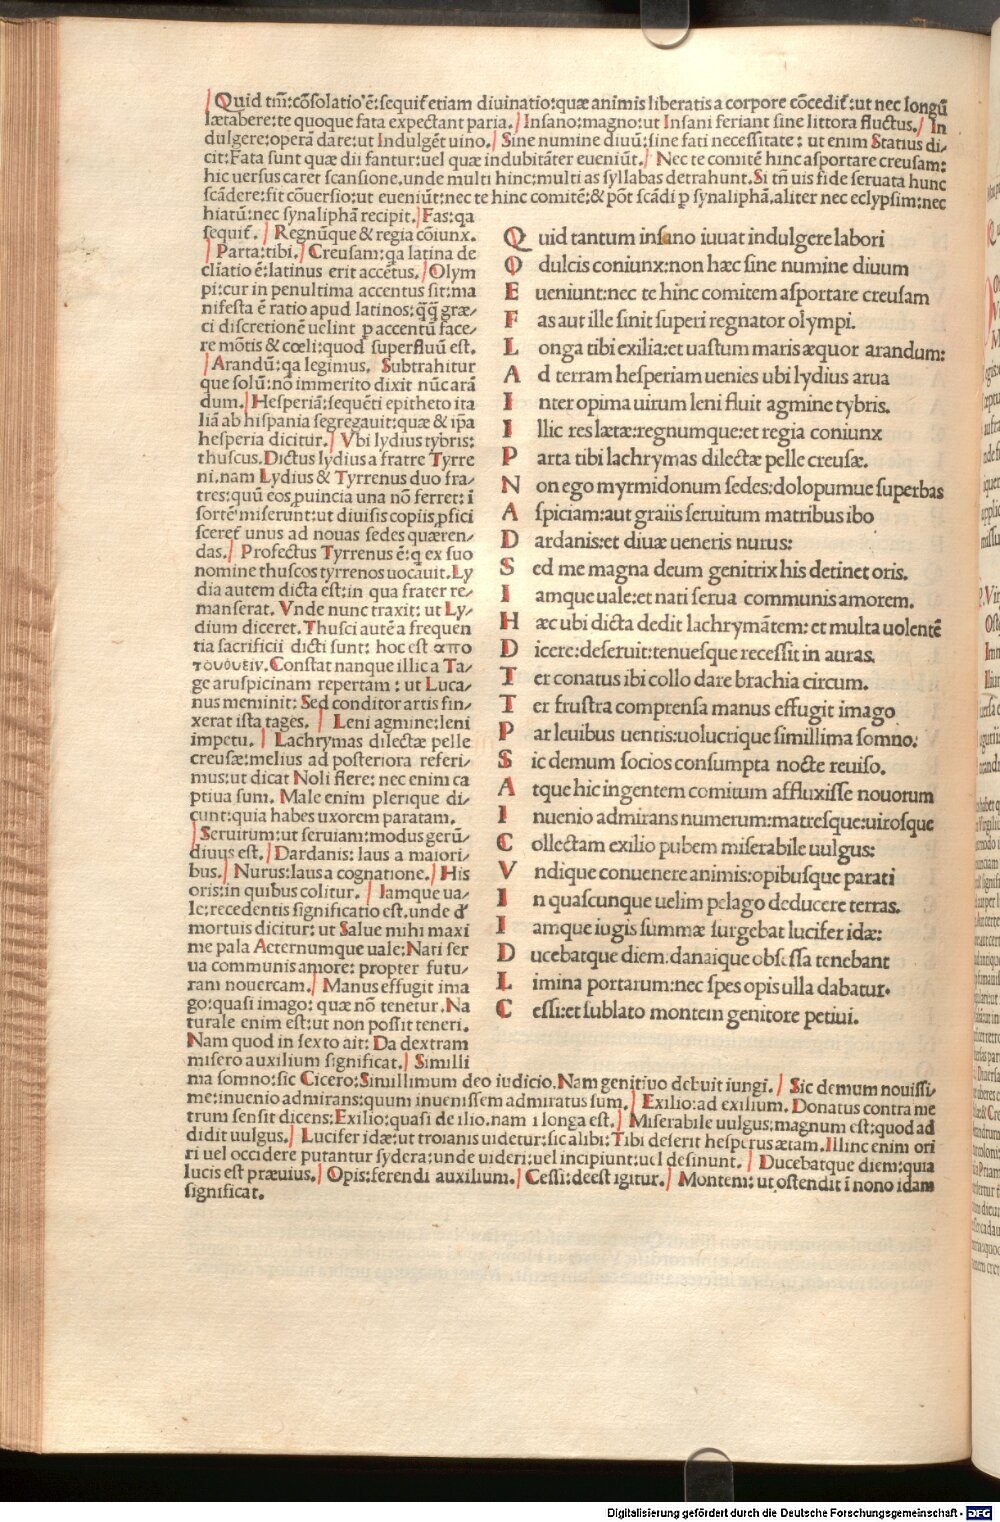 Quid tm̄: cōsolatio ē: sequiť etiam diuinatio: quæ animis liberatis a corpore cōcediť: ut nec longū
lætabere: te quoque fata expectant paria. Insano: magno: ut Insani feriant sine littora fluctus. In
dulgere: operā dare: ut Indulgēt uino. Sine numine diuū: sine fati necessitate: ut enim Statius di/
cit: Fata sunt quæ dii fantur: uel quæ indubitāter eueniūt. Nec te comitē hinc asportare creusam:
hic uersus caret scansione. unde multi hinc: multi as syllabas detrahunt. Si tn̄ uis fide seruata hunc
scādere: fit cōuersio: ut eueniūt: nec te hinc comitē: & pōt scādi p synaliphā. aliter nec eclypsim: nec
hiatū: nec synaliphā recipit. Fas: qa
sequiť. Regnūque & regia cōiunx.
Parta: tibi. Creusam: qa latina de
cliatio ē: latinus erit accētus. Olym
pi: cur in penultima accentus sit: ma
nifesta ē ratio apud latinos: q̄q̄ græ/
ci discretionē uelint p accentū face/
re mōtis & cœli: quod superfluū est.
Arandū: qa legimus. Subtrahitur
que solū: nō immerito dixit nūc arā
dum. Hesperiā: sequēti epitheto ita
liā ab hispania segregauit: quæ & ip̄a
hesperia dicitur. Vbi lydius tybris:
thuscus. Dictus lydius a fratre Tyrre
ni. nam Lydius & Tyrrenus duo fra/
tres: quū eos puincia una nō ferret: ī
sortē miserunt: ut diuisis copiis pfici
scereť unus ad nouas sedes quæren/
das. Profectus Tyrrenus ē: q ex suo
nomine thuscos tyrrenos uocauit. Ly
dia autem dicta est: in qua frater re/
manserat. Vnde nunc traxit: ut Ly/
dium diceret. Thusci autē a frequen
tia sacrificii dicti sunt: hoc est απο
τουθυειν. Constat nanque illic a Ta/
ge aruspicinam repertam: ut Luca/
nus meminit: Sed conditor artis fin/
xerat ista tages. Leni agmine: leni
impetu. Lachrymas dilectæ pelle
creusæ: melius ad posteriora referi/
mus: ut dicat Noli flere: nec enim ca
ptiua sum. Male enim plerique di/
cunt: quia habes uxorem paratam.
Seruitum: ut seruiam: modus gerū/
diuus est. Dardanis: laus a maiori/
bus. Nurus: laus a cognatione. His
oris: in quibus colitur. Iamque ua/
le: recedentis significatio est. unde &
mortuis dicitur: ut Salue mihi maxi
me pala Aeternumque uale: Nati ser
ua communis amore: propter futu/
ram nouercam. Manus effugit ima
go: quasi imago: quæ nō tenetur. Na
turale enim est: ut non possit teneri.
Nam quod in sexto ait: Da dextram
misero auxilium significat. Simili
Quid tantum insano iuuat indulgere labori
O dulcis coniunx: non hæc sine numine diuum
Eueniunt: nec te hinc comitem asportare creusam
Fas aut ille sinit superi regnator olympi.
Longa tibi exilia: et uastum maris æquor arandum:
Ad terram hesperiam uenies ubi lydius arua
Inter opima uirum leni fluit agmine tybris.
Illic res lætæ: regnumque: et regia coniunx
Parta tibi lachrymas dilectæ pelle creusæ.
Non ego myrmidonum sedes: dolopumue superbas
Aspiciam: aut graiis seruitum matribus ibo
Dardanis: et diuæ ueneris nurus:
Sed me magna deum genitrix his detinet oris.
Iamque uale: et nati serua communis amorem.
Hæc ubi dicta dedit lachrymātem: et multa uolentē
Dicere: deseruit: tenuesque recessit in auras.
Ter conatus ibi collo dare brachia circum.
Ter frustra comprensa manus effugit imago
Par leuibus uentis: uolucrique simillima somno:
Sic demum socios consumpta nocte reuiso.
Atque hic ingentem comitum affluxisse nouorum
Inuenio admirans numerum: matresque: uirosque
Collectam exilio pubem miserabile uulgus:
Vndique conuenere animis: opibusque parati
In quascunque uelim pelago deducere terras.
Iamque iugis summæ surgebat lucifer idæ:
Ducebatque diem. danaique obsessa tenebant
Limina portarum: nec spes opis ulla dabatur.
Cessi: et sublato montem genitore petiui.
ma somno: sic Cicero: Simillimum deo iudicio. Nam genitiuo debuit iungi. Sic demum nouissi/
me: inuenio admirans: quum inuenissem admiratus sum. Exilio: ad exilium. Donatus contra me
trum sensit dicens: Exilio: quasi de ilio. nam i longa est. Miserabile uulgus: magnum est: quod ad
didit uulgus. Lucifer idæ: ut troianis uidetur: sic alibi: Tibi deserit hesperus ætam. Illinc enim ori
ri uel occidere putantur sydera: unde uideri: uel incipiunt: uel desinunt. Ducebatque diem: quia
lucis est præuius. Opis: ferendi auxilium. Cessi: deest igitur. Montem: ut ostendit ī nono idam
significat.
Digitalisierung gefördert durch die Deutsche Forschungsgemeinschaft - DFG